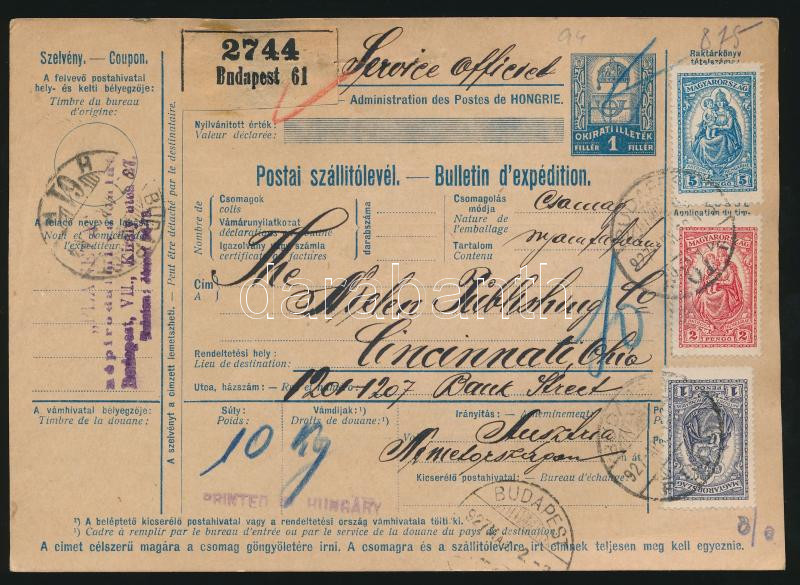 Szelvény. — Coupon.
A felvevő postahivatal
hely- és kelti bélyegzője:
Timbre du bureau
d'origine:
A feladó neve és lakása
Nom et domicile de
l'expéditeur:
A vámhivatal bélyegzője:
Timbre de la douane:
A szelvényt a címzett lemetszheti. — Peut être détaché par le destinataire.
Budapest, VII., Király utca
PRINTED IN HUNGARY
2744
Budapest 61
94
875
Service Officiel
Administration des Postes de HONGRIE.
Raktárkönyv
Nyilvánított érték:
Valeur déclarée:
OKIRATI ILLETÉK
FILLÉR 1 FILLÉR
Postai szállítólevél. — Bulletin d'expédition.
Nombre de
Csomagok
colis
Vámárunyilatkozat
déclarations en douane
Igazolvány vagy számla
certificats ou factures
darabszáma
Csomagolás
módja
Nature de
l'emballage
Tartalom
Contenu
csomag
nyomtatvány
Cím
A
The Nocler Publishing Co
Rendeltetési hely:
Lieu de destination:
Cincinnati Ohio
Utca, házszám: — Rue et numéro:
1201-1207 Bank Street
Súly:
Poids:
10 Kg
Vámdíjak:¹)
Droits de douane:¹)
Irányítás: — Acheminement:
Ausztria
Németországon
át
Kicserélő postahivatal: — Bureau d'échange:
10
MAGYARORSZÁG
5 PENGŐ 5
Application du tim-
MAGYARORSZÁG
2 PENGŐ 2
MAGYARORSZÁG
1 PENGŐ 1
BUDAPEST
¹) A beléptető kicserélő postahivatal vagy a rendeltetési ország vámhivatala tölti ki.
¹) Cadre à remplir par le bureau d'entrée ou par le service de la douane du pays de destination.
A címet célszerű magára a csomag göngyöletére írni. A csomagra és a szállítólevélre írt címnek teljesen meg kell egyeznie.
darabanth